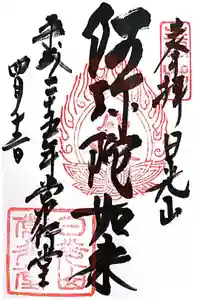 奉拝 日光山
阿弥陀如来
平成二十五年 常行堂
四月十三日